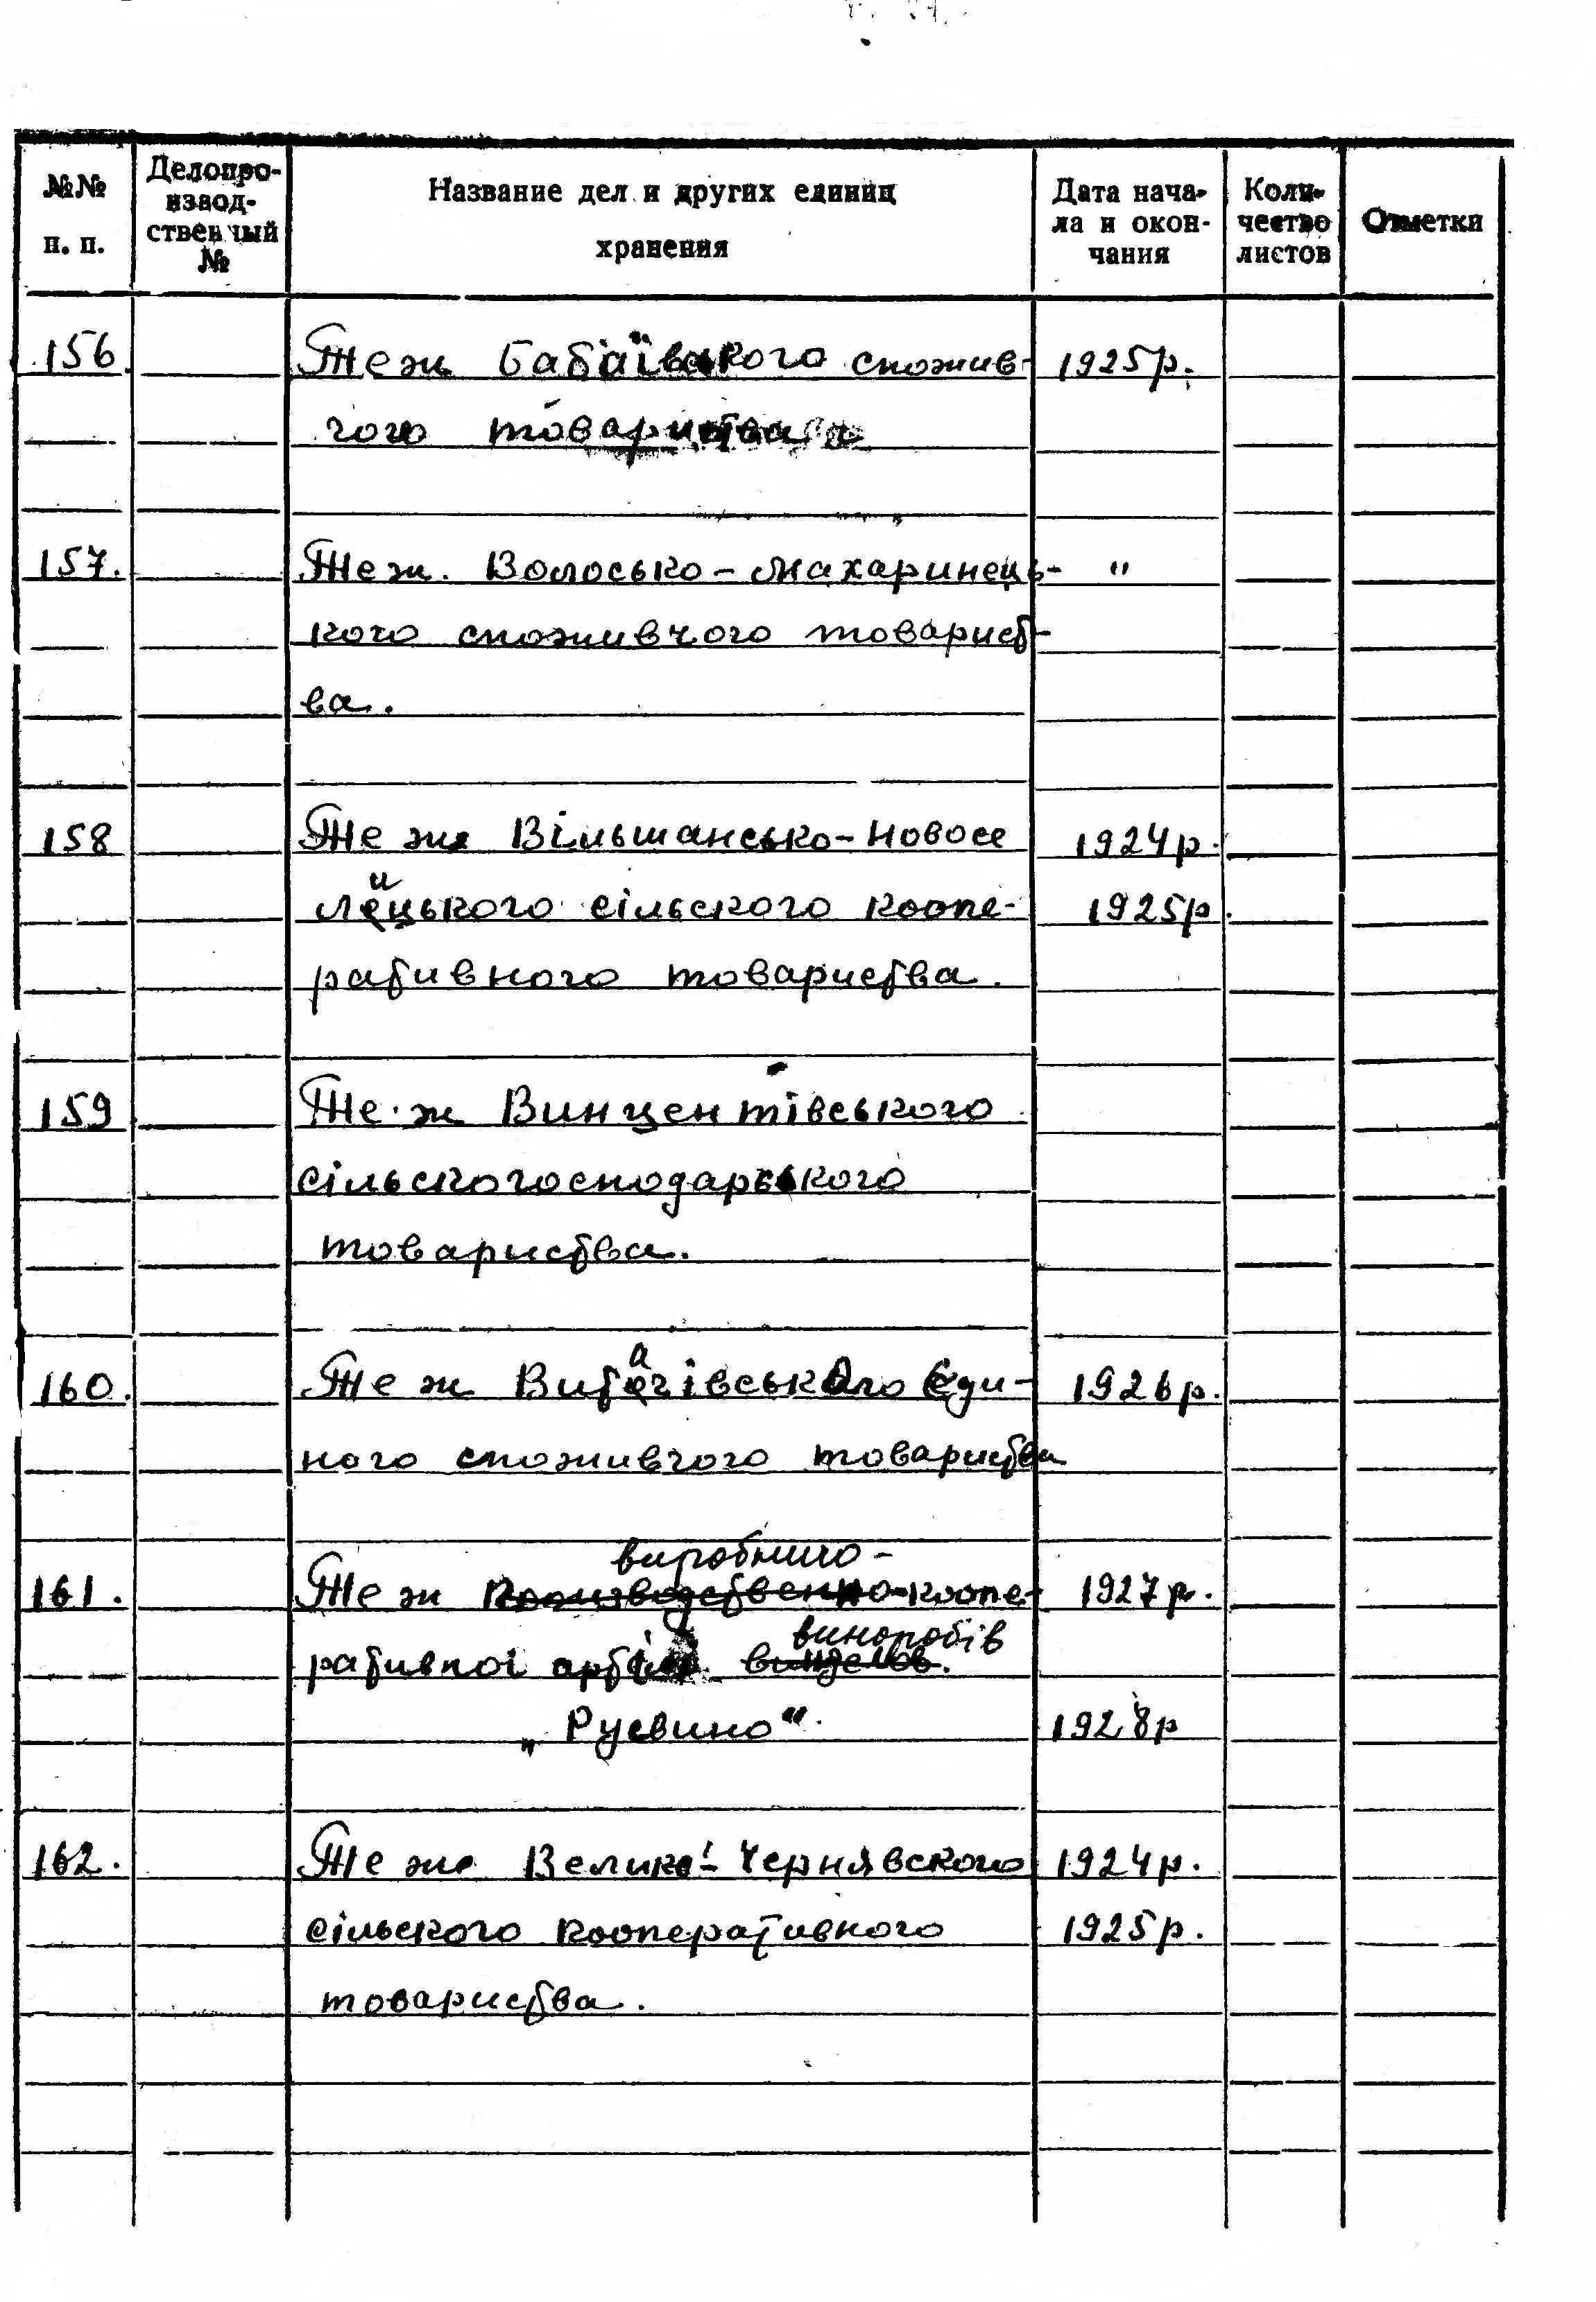 №№ п. п.
Делопро-
извод-
ственный
№
Название дел и других единиц
хранения
Дата нача-
ла и окон-
чания
Коли-
чество
листов
Отметки
156. Те ж Бабаївського спожив- 1925р.
чого товариства
157. Те ж. Волосько-Махаринець- "
кого споживчого товарист-
ва.
158 Те ж Вільшансько-Новосе 1924р.
лицького сільского коопе- 1925р.
ративного товариства.
159 Те ж Винцентівського
сільскогосподарського
товариства.
160. Те ж Витачівського Єди- 1926р.
ного споживчого товариства
виробничо-
161. Те ж производственно-коопе- 1927р.
виноробів
ративної артілі виноделов.
„Русвино“. 1928р
162. Те ж Велико-Чернявского 1924р.
сільского кооперативного 1925р.
товариства.